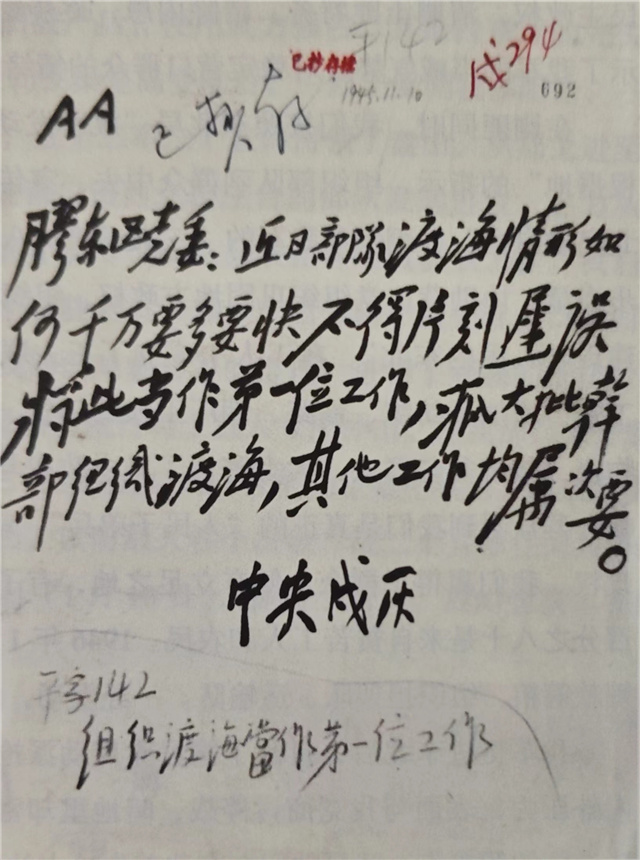 平142
已抄存档
1945.11.10
戌294
692
AA 已抄存
膠东区党委：近日部隊渡海情形如
何千万要多要快不得片刻遲誤
将此当作第一位工作，派大批幹
部组织渡海，其他工作均属次要。
中央戌灰
平字142
组织渡海當作第一位工作